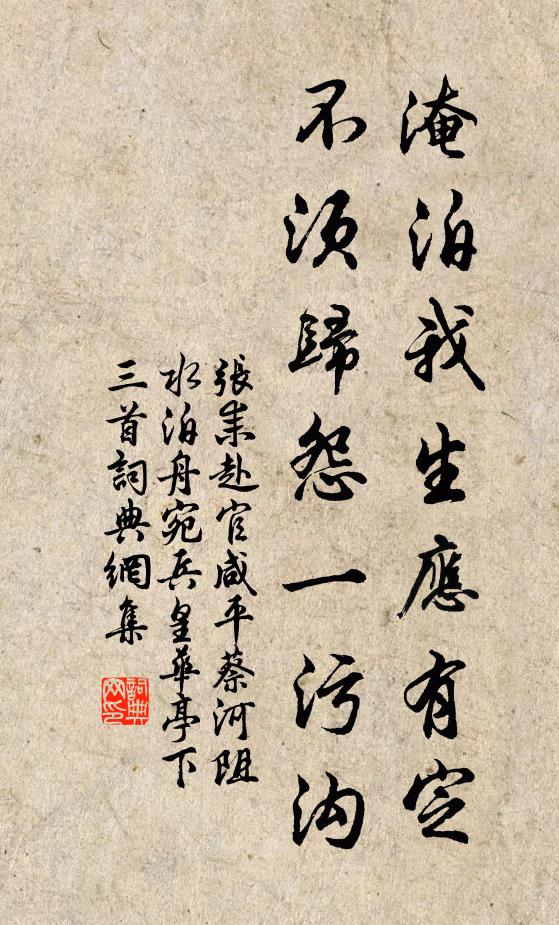 淹泊我生應有定
不須歸怨一污沟
張耒赴官咸平蔡河阻
水泊舟宛兵皇華亭下
三首詞典網集
詞典
网印